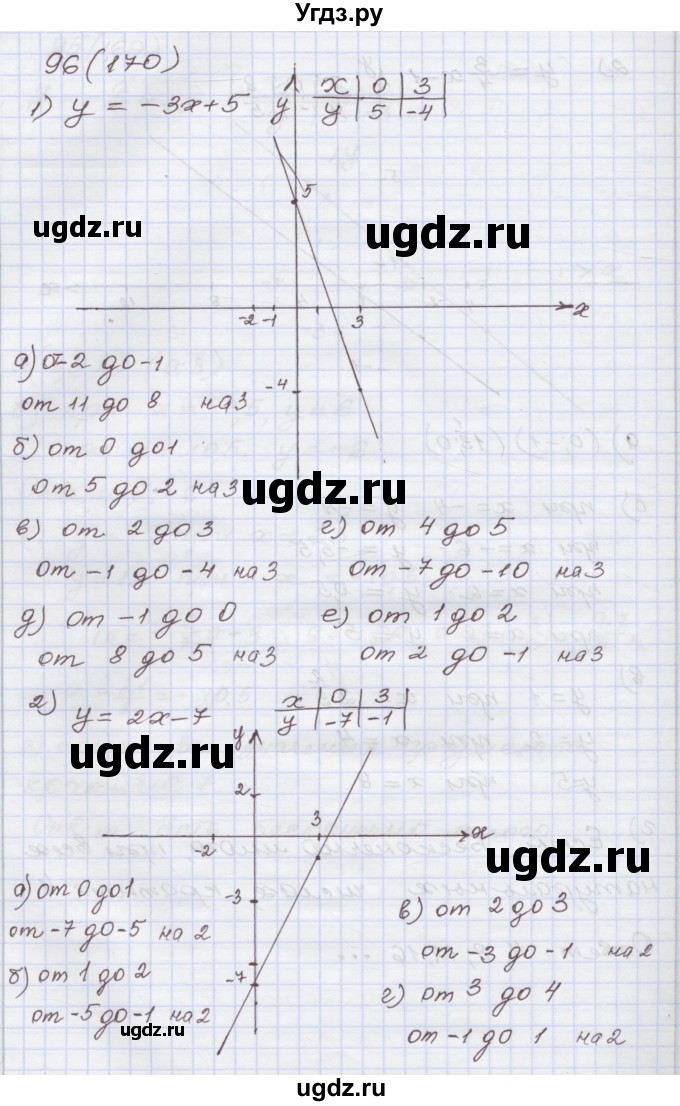 Угдз.ру
96 (170)
1) y = -3x+5
y
x | 0 | 3
y | 5 | -4
5
ugdz.ru
ugdz.ru
-2 -1 3 x
а) от -2 до -1
-4
от 11 до 8 на 3
б) от 0 до 1
ugdz.ru
от 5 до 2 на 3
в) от 2 до 3 г) от 4 до 5
от -1 до -4 на 3 от -7 до -10 на 3
д) от -1 до 0 е) от 1 до 2
от 8 до 5 на 3 от 2 до -1 на 3
2) y = 2x-7
x | 0 | 3
y | -7 | -1
y
ugdz.ru
2
-2 3 x
ugdz.ru
а) от 0 до 1
-3
в) от 2 до 3
от -7 до -5 на 2
от -3 до -1 на 2
б) от 1 до 2
-7
г) от 3 до 4
от -5 до -1 на 2
ugdz.ru
от -1 до 1 на 2
ugdz.ru